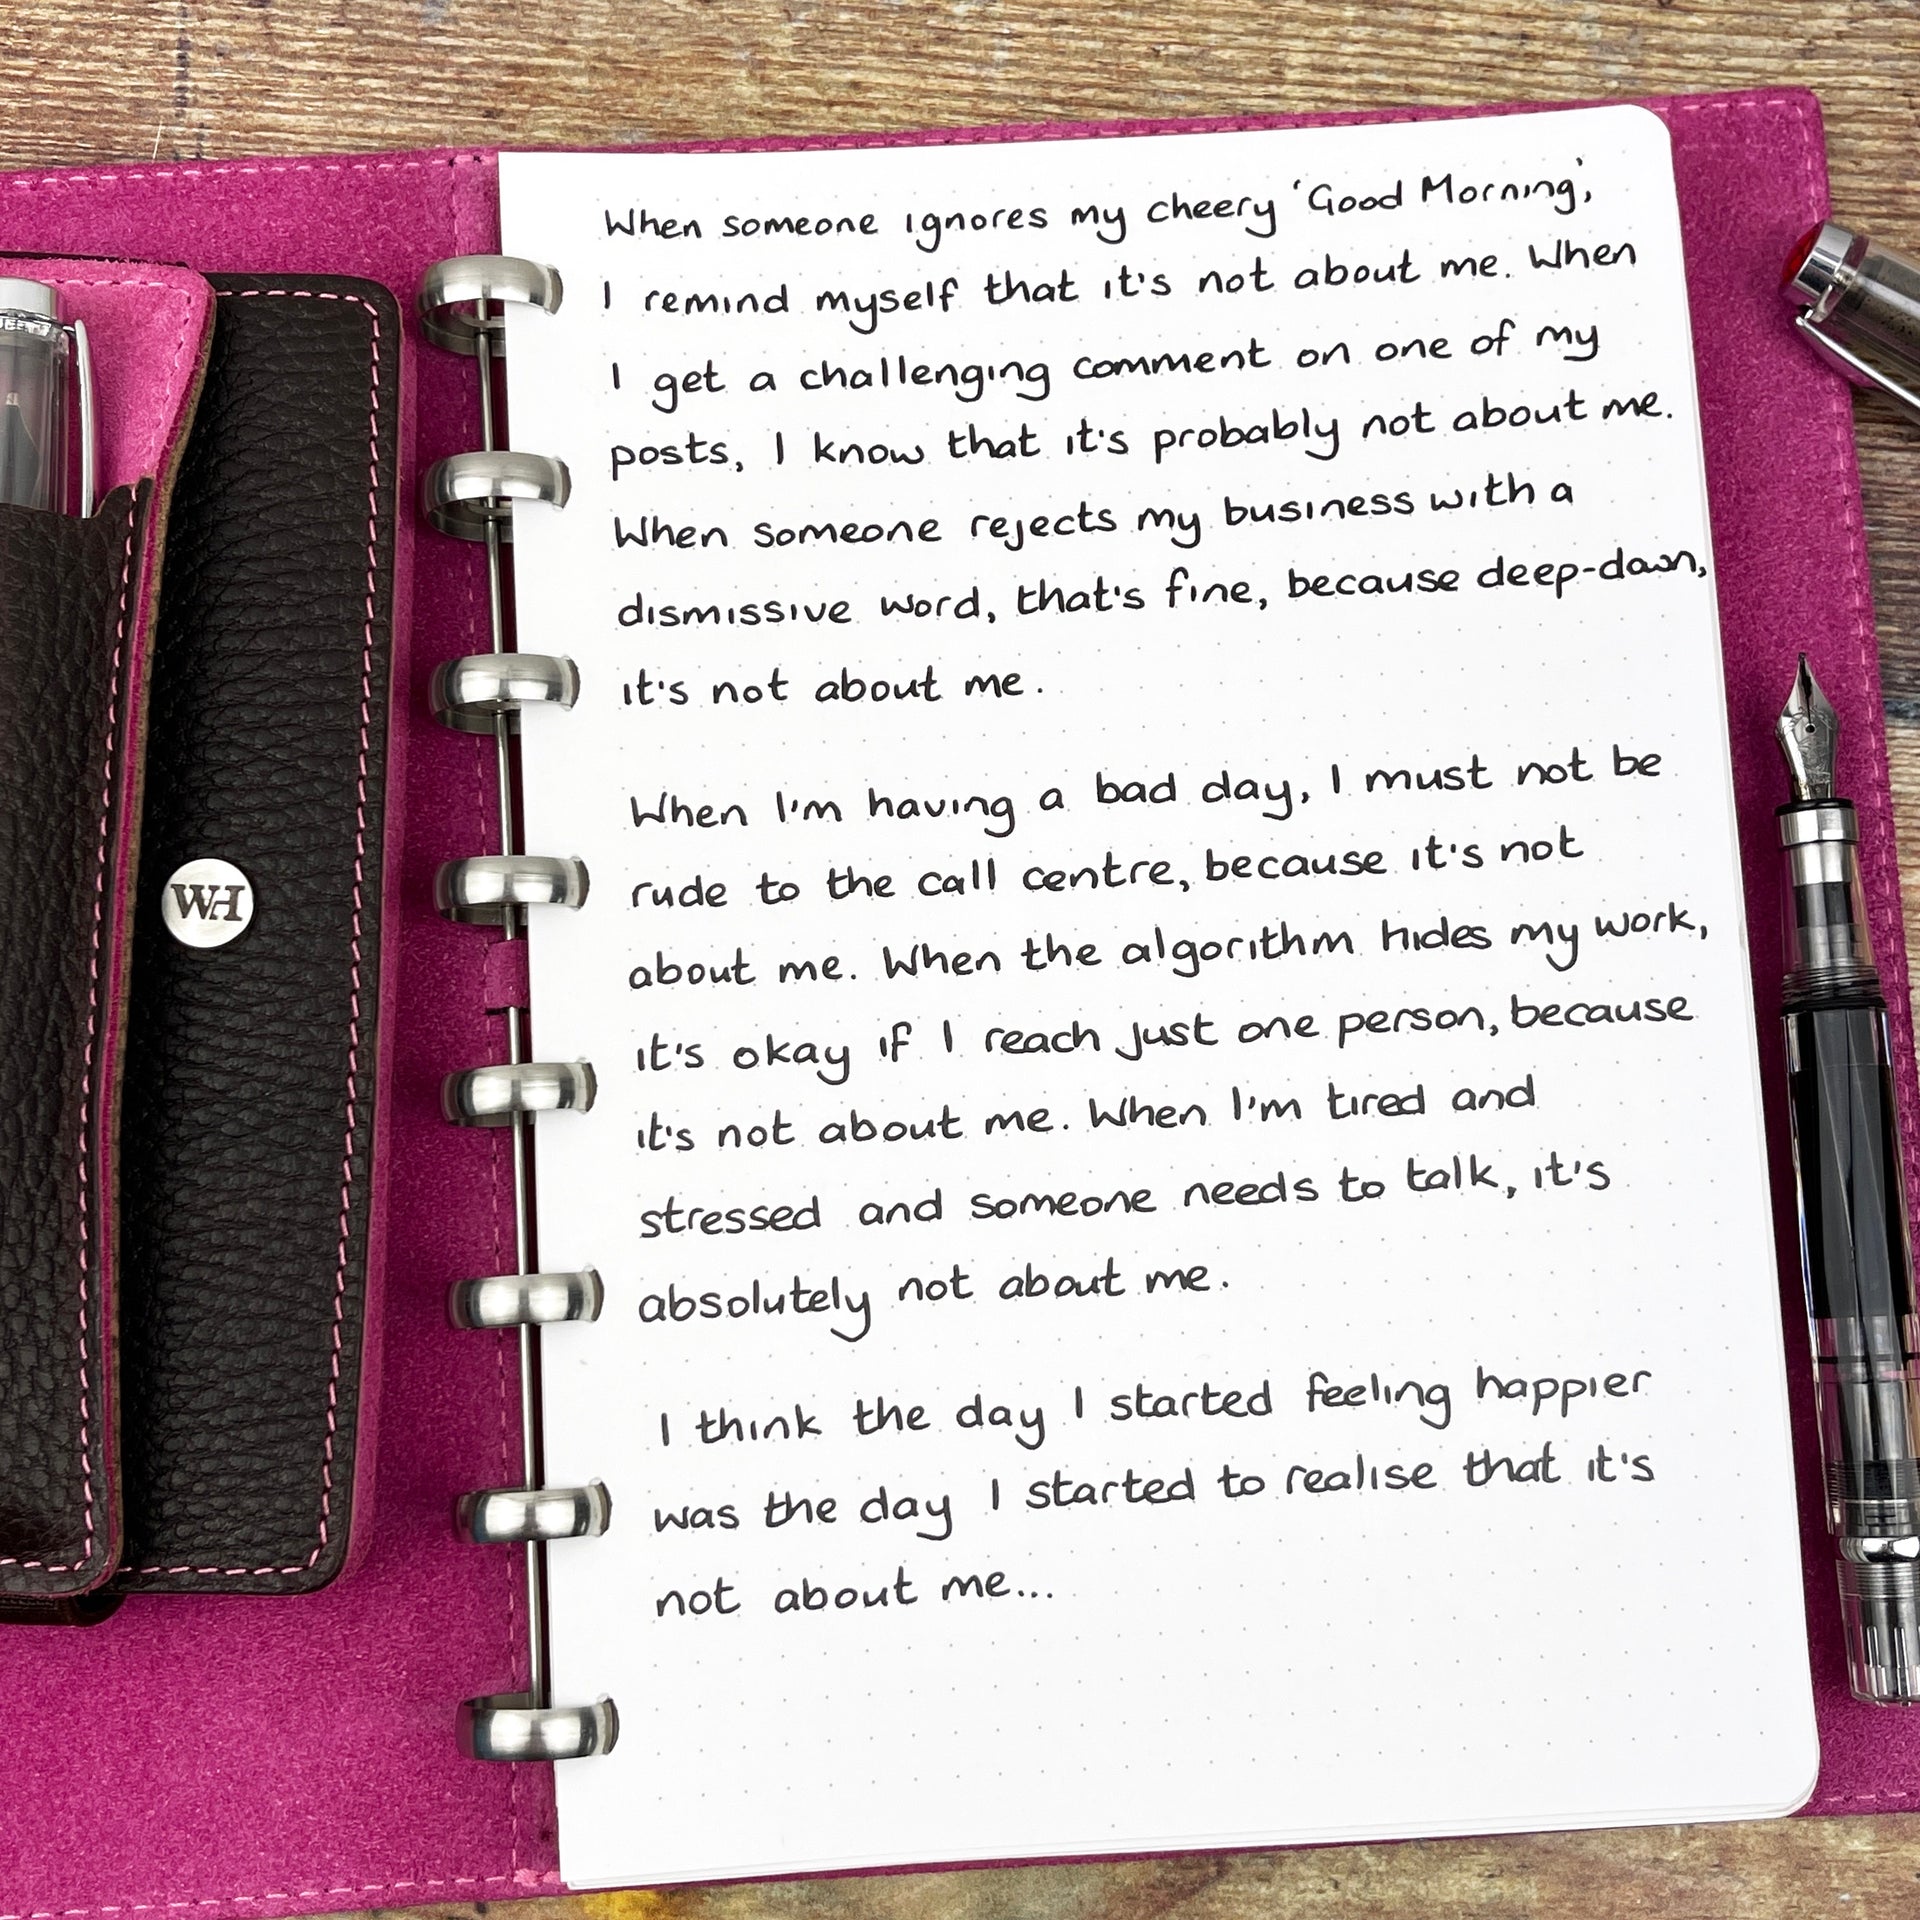 When someone ignores my cheery 'Good Morning,'
I remind myself that it's not about me. When
I get a challenging comment on one of my
posts, I know that it's probably not about me.
When someone rejects my business with a
dismissive word, that's fine, because deep-down,
it's not about me.
When I'm having a bad day, I must not be
rude to the call centre, because it's not
about me. When the algorithm hides my work,
it's okay if I reach just one person, because
it's not about me. When I'm tired and
stressed and someone needs to talk, it's
absolutely not about me.
I think the day I started feeling happier
was the day I started to realise that it's
not about me...
WH